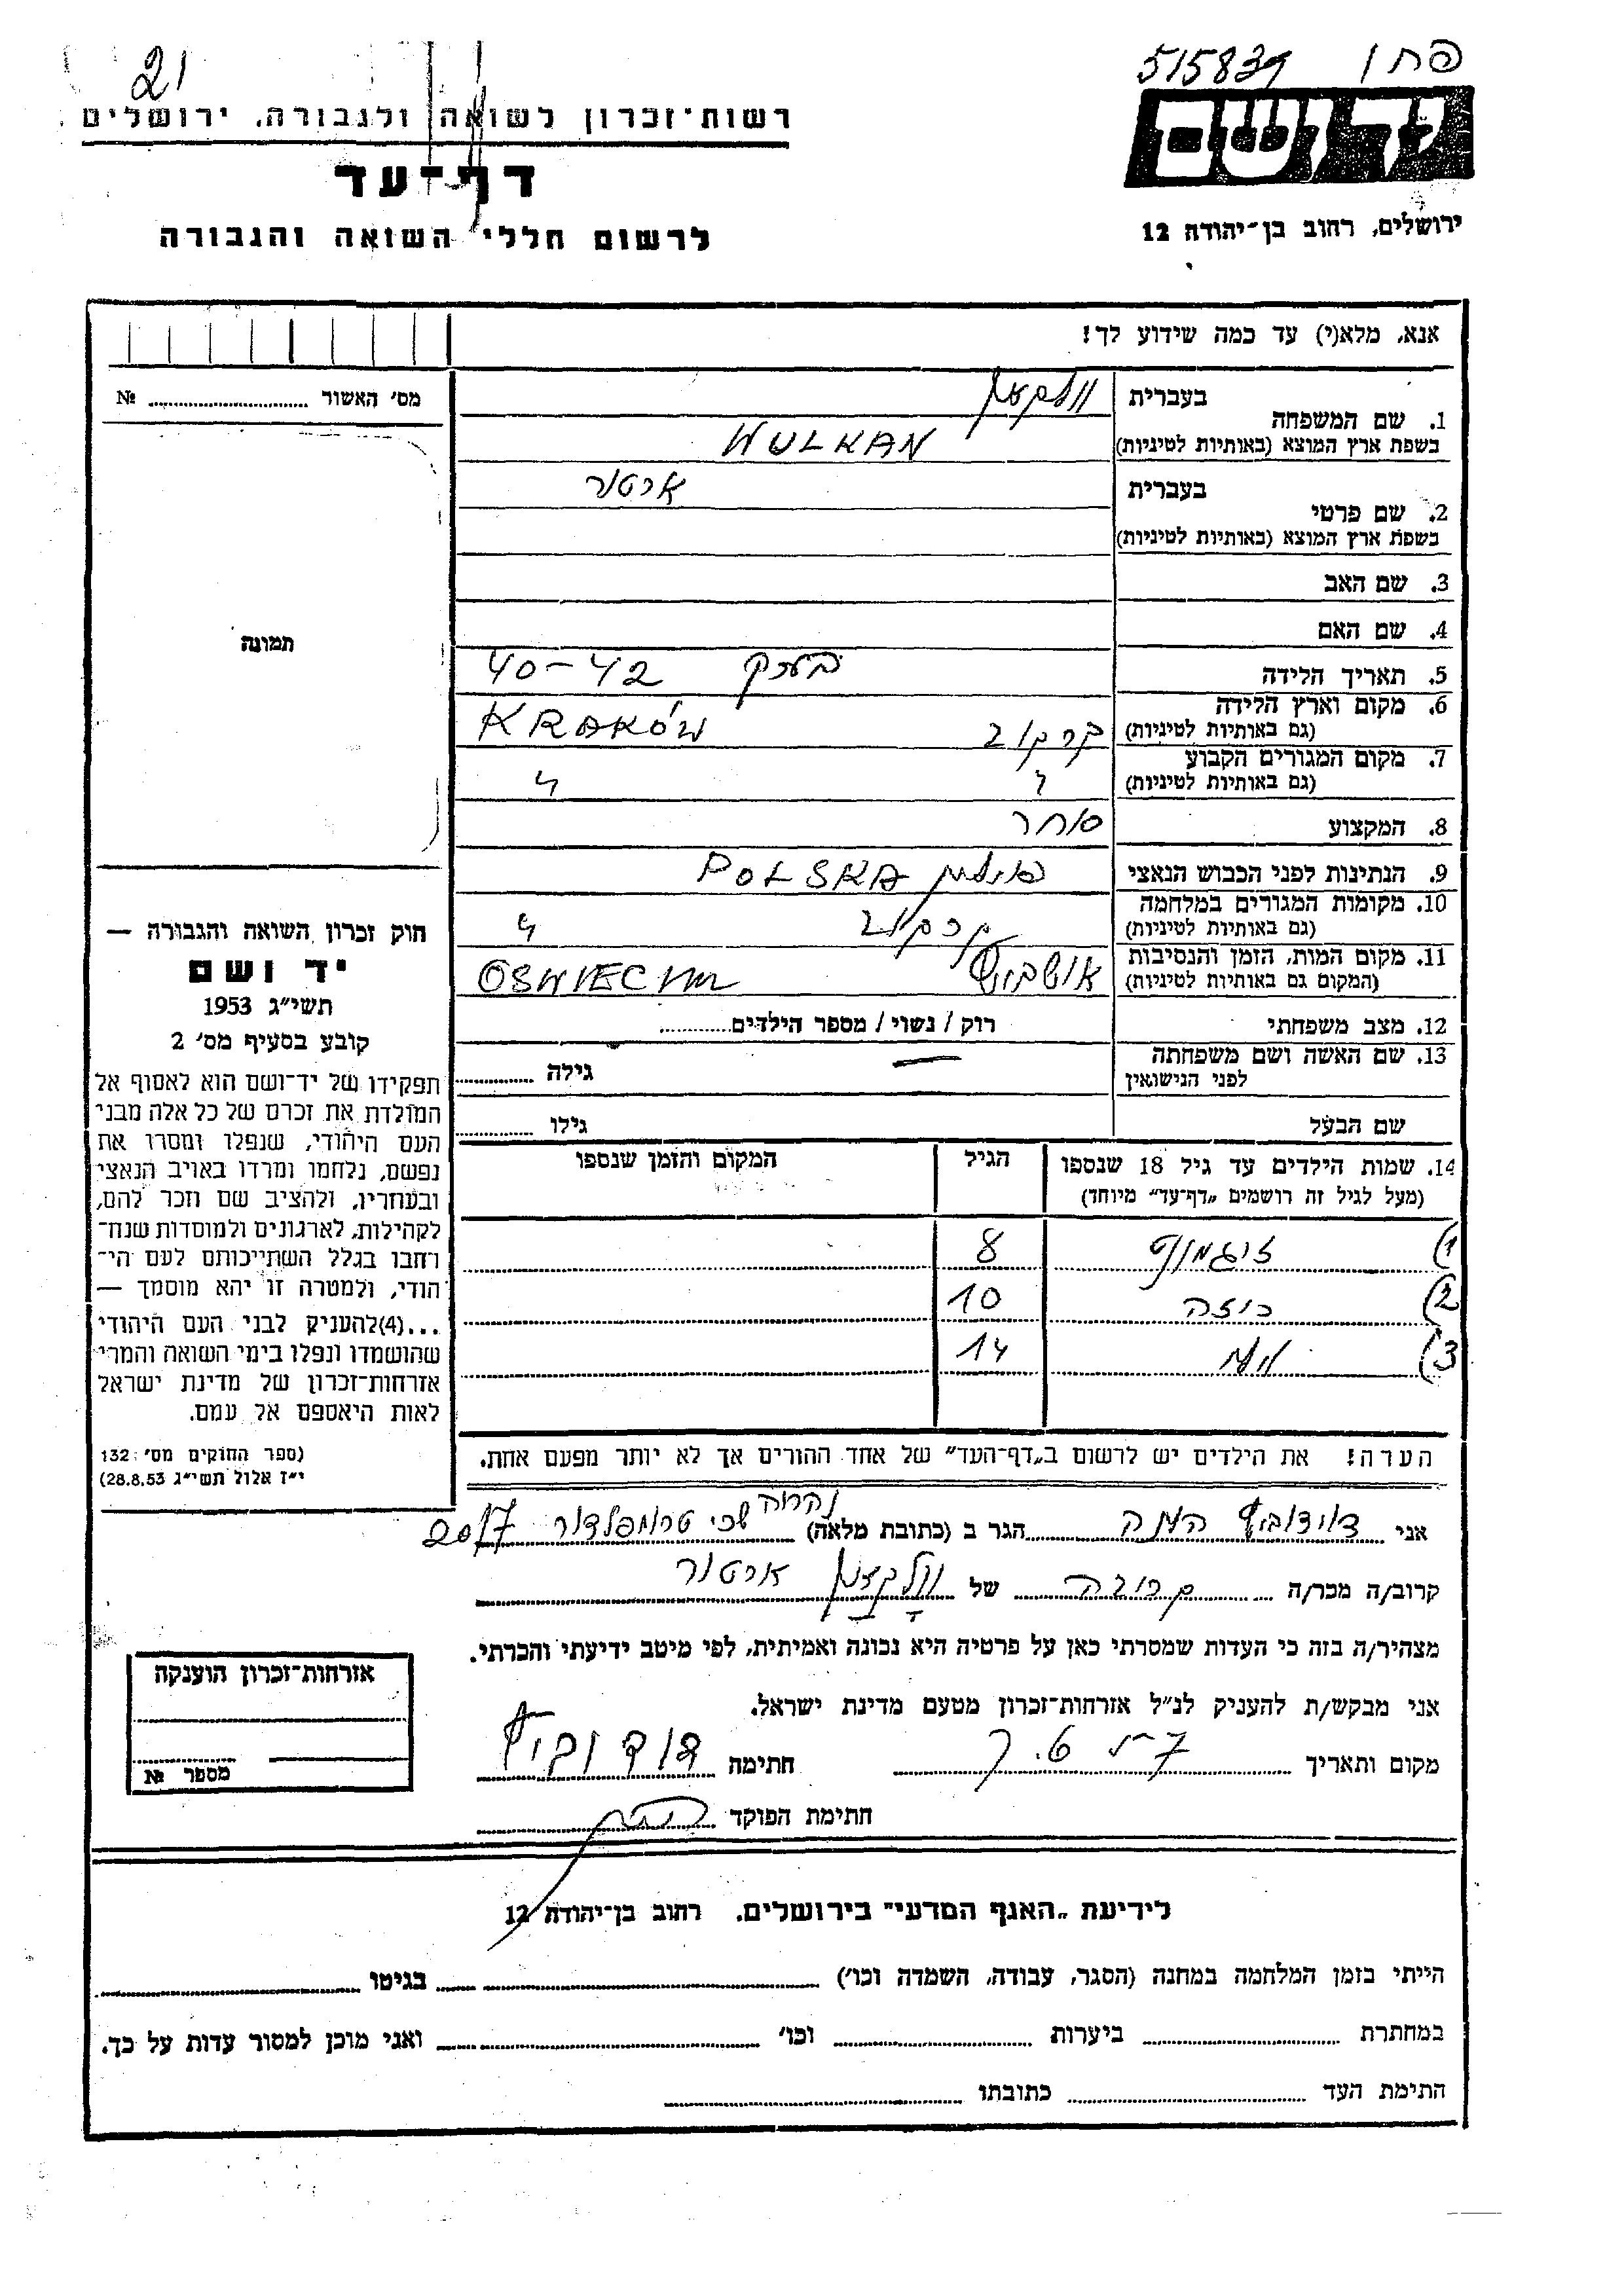 פחו 515839
21
יד ושם
רשות-זכרון לשואה ולגבורה, ירושלים
דף-עד
ירושלים, רחוב בן-יהודה 12
לרשום חללי השואה והגבורה
אנא, מלא(י) עד כמה שידוע לך!
מס׳ האשור ........ №
תמונה
1. שם המשפחה
בעברית
בשפת ארץ המוצא (באותיות לטיניות)
WULKAN
2. שם פרטי
בעברית ארטור
בשפת ארץ המוצא (באותיות לטיניות)
3. שם האב
4. שם האם
5. תאריך הלידה בערך 40-42
6. מקום וארץ הלידה
(גם באותיות לטיניות) קרקוב KRAKÓW
7. מקום המגורים הקבוע
(גם באותיות לטיניות) " "
8. המקצוע סוחר
9. הנתינות לפני הכבוש הנאצי פולין POLSKA
10. מקומות המגורים במלחמה
(גם באותיות לטיניות) קרקוב "
11. מקום המות, הזמן והנסיבות
(המקום גם באותיות לטיניות) אושביץ OSWIECIM
12. מצב משפחתי רוק / נשוי / מספר הילדים........
13. שם האשה ושם משפחתה
לפני הנישואין — גילה ........
שם הבעל גילו ........
14. שמות הילדים עד גיל 18 שנספו הגיל המקום והזמן שנספו
(מעל לגיל זה רושמים „דף-עד" מיוחד)
1) זיגמונד 8
2) רוזה 10
3) 14
הערה! את הילדים יש לרשום ב„דף-העד" של אחד ההורים אך לא יותר מפעם אחת.
חוק זכרון השואה והגבורה —
יד ושם
תשי״ג 1953
קובע בסעיף מס׳ 2
תפקידו של יד-ושם הוא לאסוף אל
המולדת את זכרם של כל אלה מבני
העם היהודי, שנפלו ומסרו את
נפשם, נלחמו ומרדו באויב הנאצי
ובעוזריו, ולהציב שם וזכר להם,
לקהילות, לארגונים ולמוסדות שנח-
רחבו בגלל השתייכותם לעם הי-
הודי, ולמטרה זו יהא מוסמך —
...(4)להעניק לבני העם היהודי
שהושמדו ונפלו בימי השואה והמרי
אזרחות-זכרון של מדינת ישראל
לאות היאספם אל עמם.
(ספר החוקים מס׳ 132:
י״ז אלול תשי״ג 28.8.53)
אני דוידוביץ הנה הגר ב (כתובת מלאה) שכי טרומפלדור 20/7
קרוב/ה מכר/ה קרובה של וולקאן ארטור
מצהיר/ה בזה כי העדות שמסרתי כאן על פרטיה היא נכונה ואמיתית, לפי מיטב ידיעתי והכרתי.
אני מבקש/ת להעניק לנ״ל אזרחות-זכרון מטעם מדינת ישראל.
מקום ותאריך חתימה דוידוביץ
חתימת הפוקד
אזרחות-זכרון הוענקה
מספר №
לידיעת „האגף המדעי" בירושלים. רחוב בן-יהודה 12
הייתי בזמן המלחמה במחנה (הסגר, עבודה, השמדה וכו׳) ........ בגיטו ........
במחתרת ........ ביערות ........ וכו׳ ........ ואני מוכן למסור עדות על כך.
חתימת העד ........ כתובתו ........